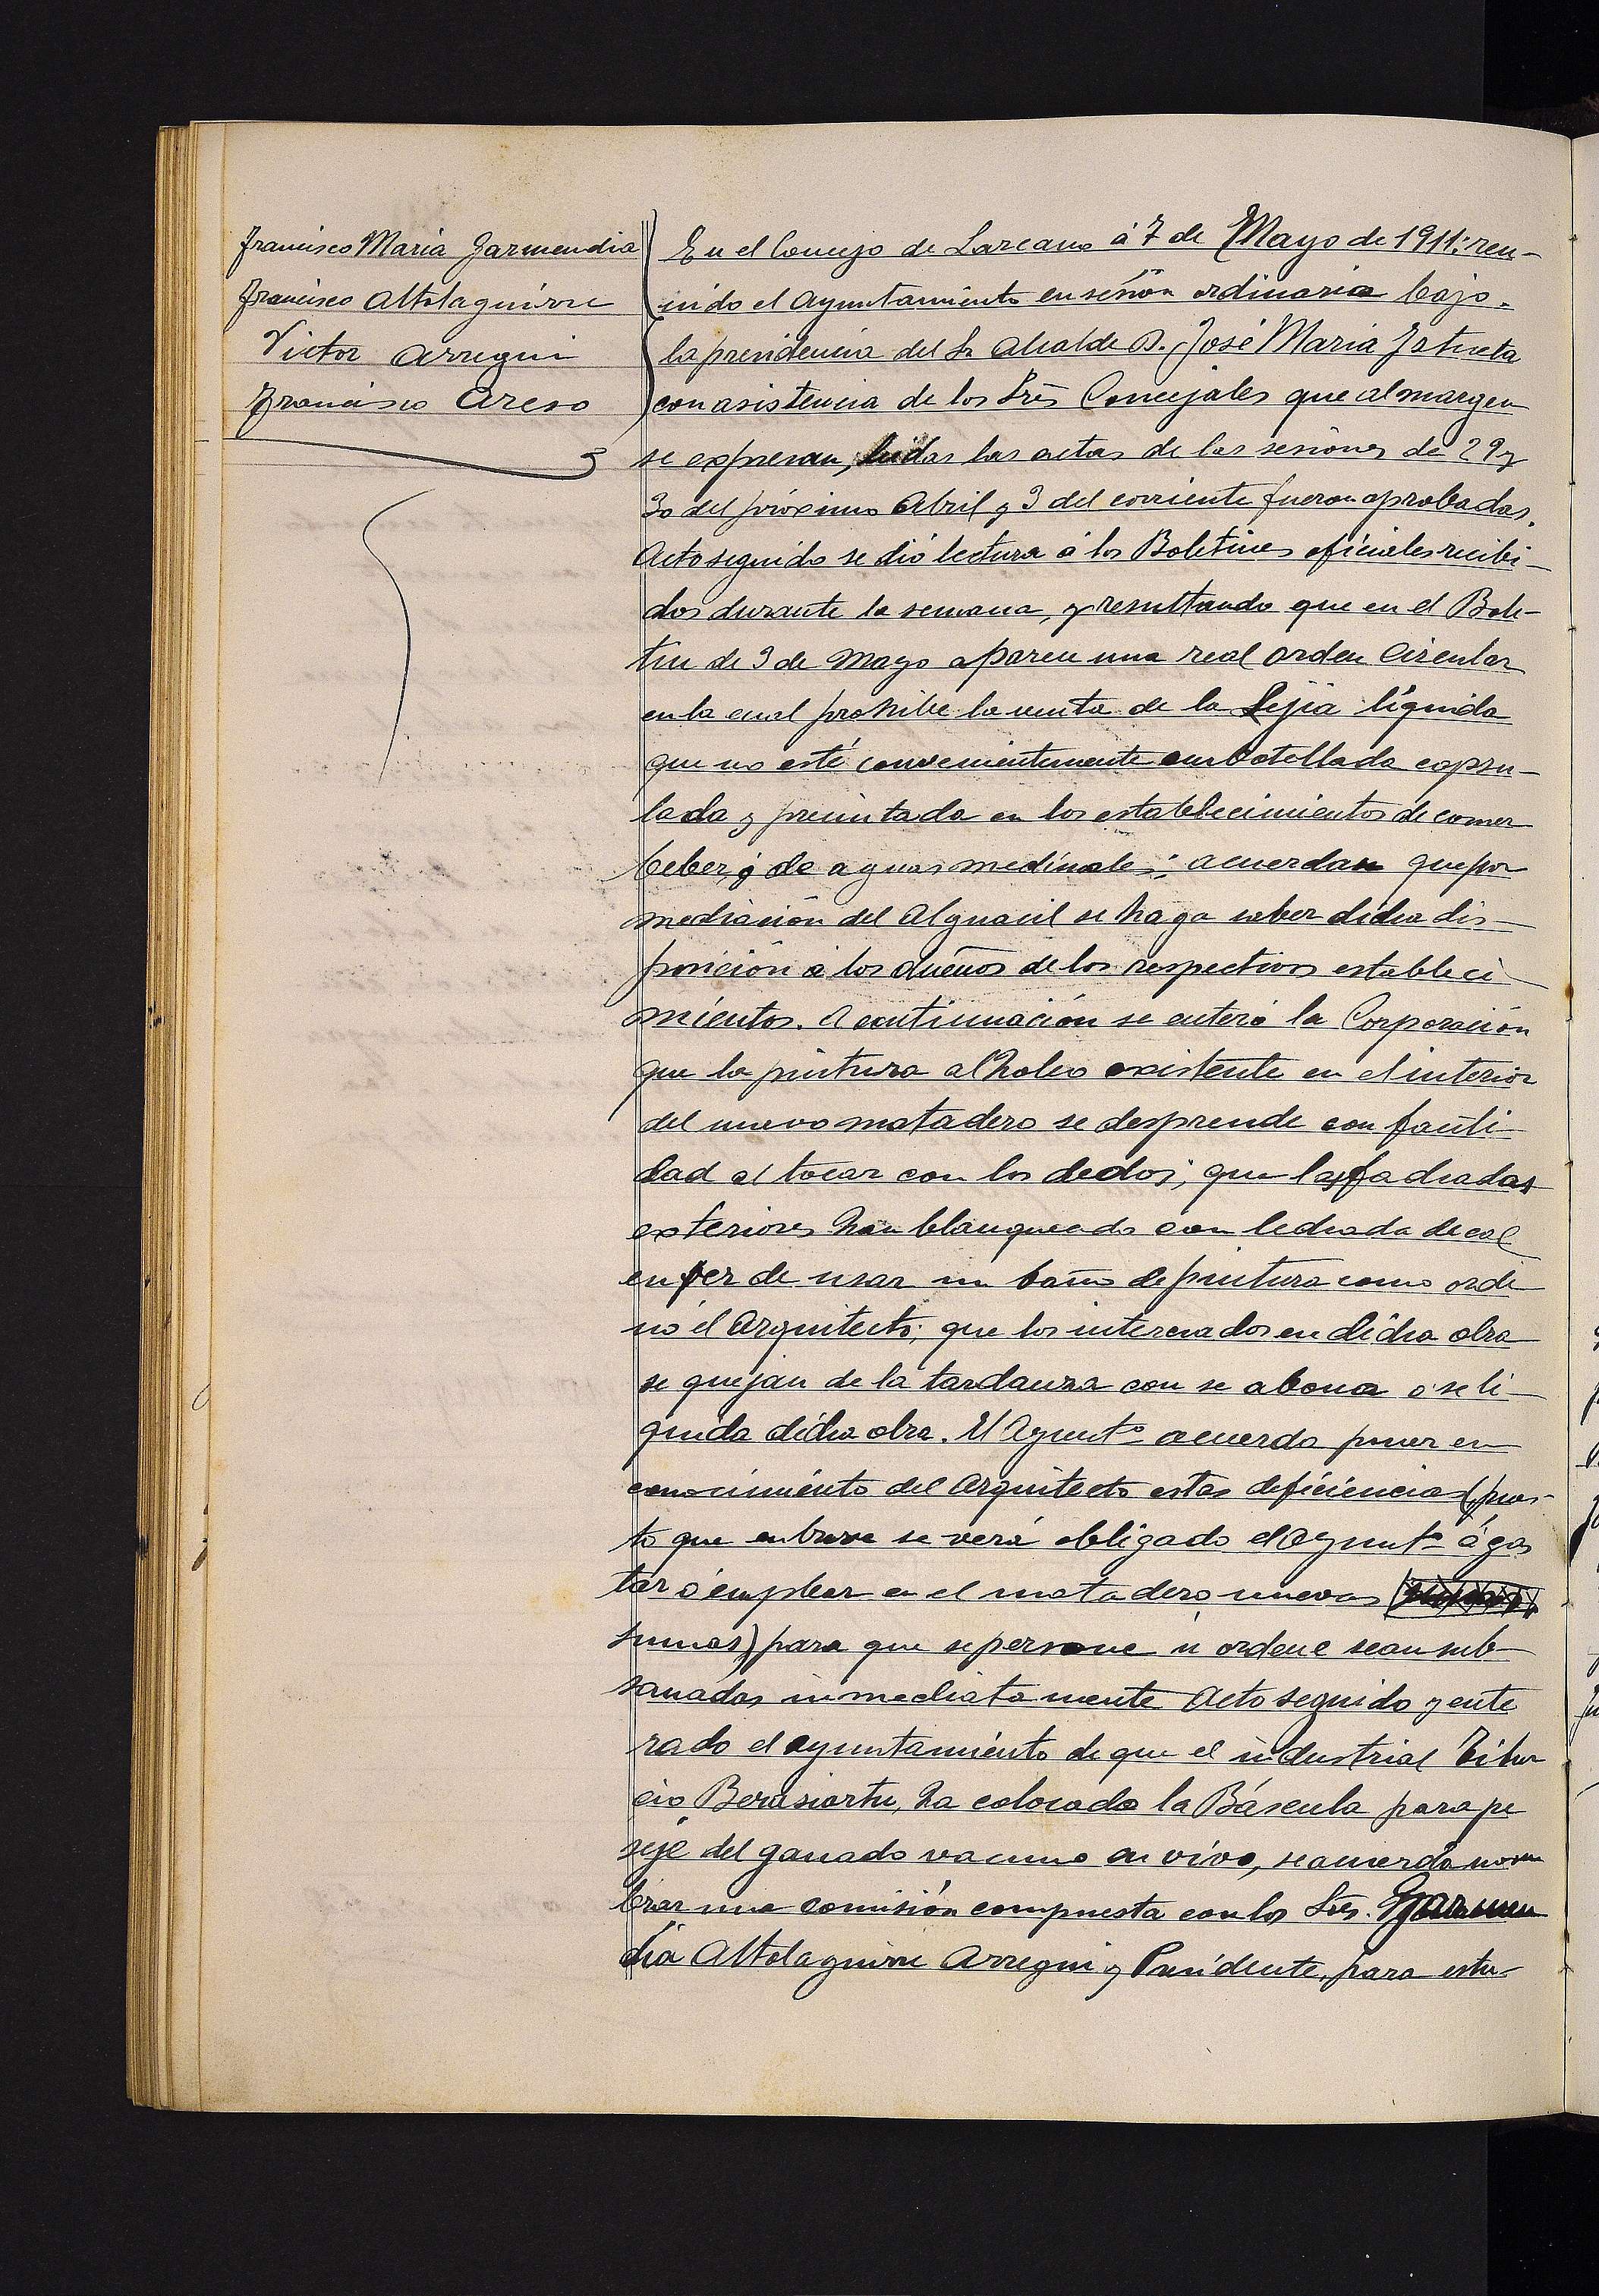 Francisco Maria Garmendia
Francisco Altolaguirre
Victor Arregui
Francisco Areso
En el Concejo de Lazcano á 7 de Mayo de 1911: reu-
nido el Ayuntamiento en sesión ordinaria bajo
la presidencia del Sr Alcalde D. José Maria Iztueta
con asistencia de los Srēs Concejales que al margen
se expresan, leidas las actas de las sesiones de 29 y
30 del próximo Abril y 3 del corriente fueron aprobadas.
Acto seguido se dió lectura á los Boletines oficiales recibi-
dos durante la semana, y resultando que en el Bole-
tin de 3 de Mayo aparece una real orden Circular
en la cual prohibe la venta de la Lejia líquida
que no esté convenientemente embotellada capsu-
lada y precintada en los establecimientos de comer
beber, ó de aguas medinales; acuerdan que por
mediación del Alguacil se haga saber dicha dis-
posición á los dueños de los respectivos estableci
mientos. A continuación se enteró la Corporación
que la pintura al holeo existente en el interior
del nuevo matadero se desprende con facili
dad al tocar con los dedos; que las fachadas
exteriores han blanqueado con lechada de cal
en vez de usar un baño de pintura como orde
nó el Arquitecto; que los interesados en dicha obra
se quejan de la tardanza con se abona o se li-
quida dicha obra. El Ayuntº acuerda poner en
conocimiento del Arquitecto estas deficiencias (pues-
to que en breve se verá obligado el Ayuntº á gas
tar ó emplear en el matadero nuevas
sumas) para que se persone u ordene sean sub
sanadas inmediatamente Acto seguido y ente
rado el ayuntamiento de que el industrial Tibur
cio Berasiartu, ha colocado la Báscula para pe
seje del ganado vacuno en vivo, se acuerda nom
brar una comisión compuesta con los Srēs. Garmen
dia Altolaguirre Arregui y Presidente, para estu-